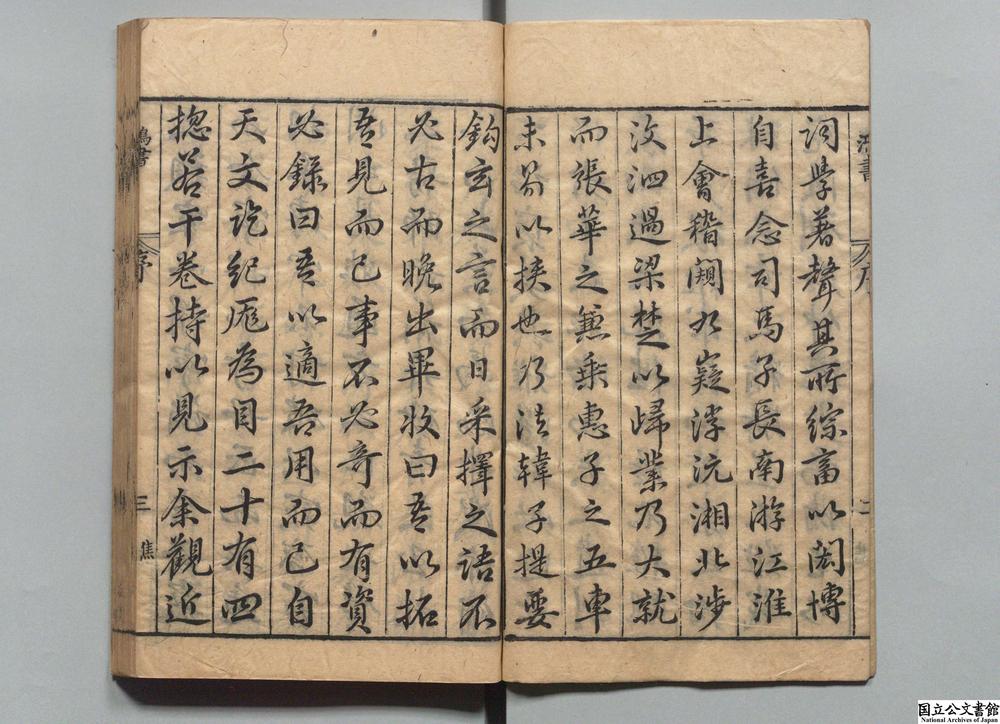 詞學著聲其所綜畜以閎博
自喜念司馬子長南游江淮
上會稽闚九嶷浮沅湘北渉
汶泗過梁楚以歸業乃大就
而張華之無乗惠子之五車
未易以挾也乃法韓子提要
鈎玄之言而日采擇之語不
必古而晚出畢收曰吾以拓
吾見而已事不必奇而有資
必錄曰吾以適吾用而已自
天文訖紀厖為目二十有四
揔若干卷持以見示余觀近
鴻書
序
三
焦
国立公文書館
National Archives of Japan